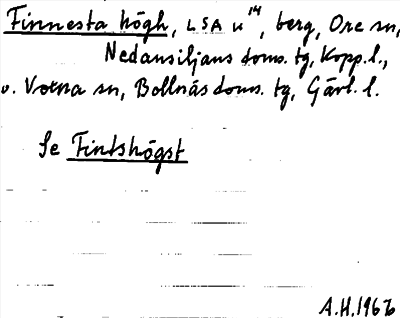 Finnesta högh, LSA u 14, berg, Ore sn,
Nedansiljans doms. tg, Kopp. l.,
o. Voxna sn, Bollnäs doms. tg, Gävl. l.
Se Fintshögst
A.H. 1967